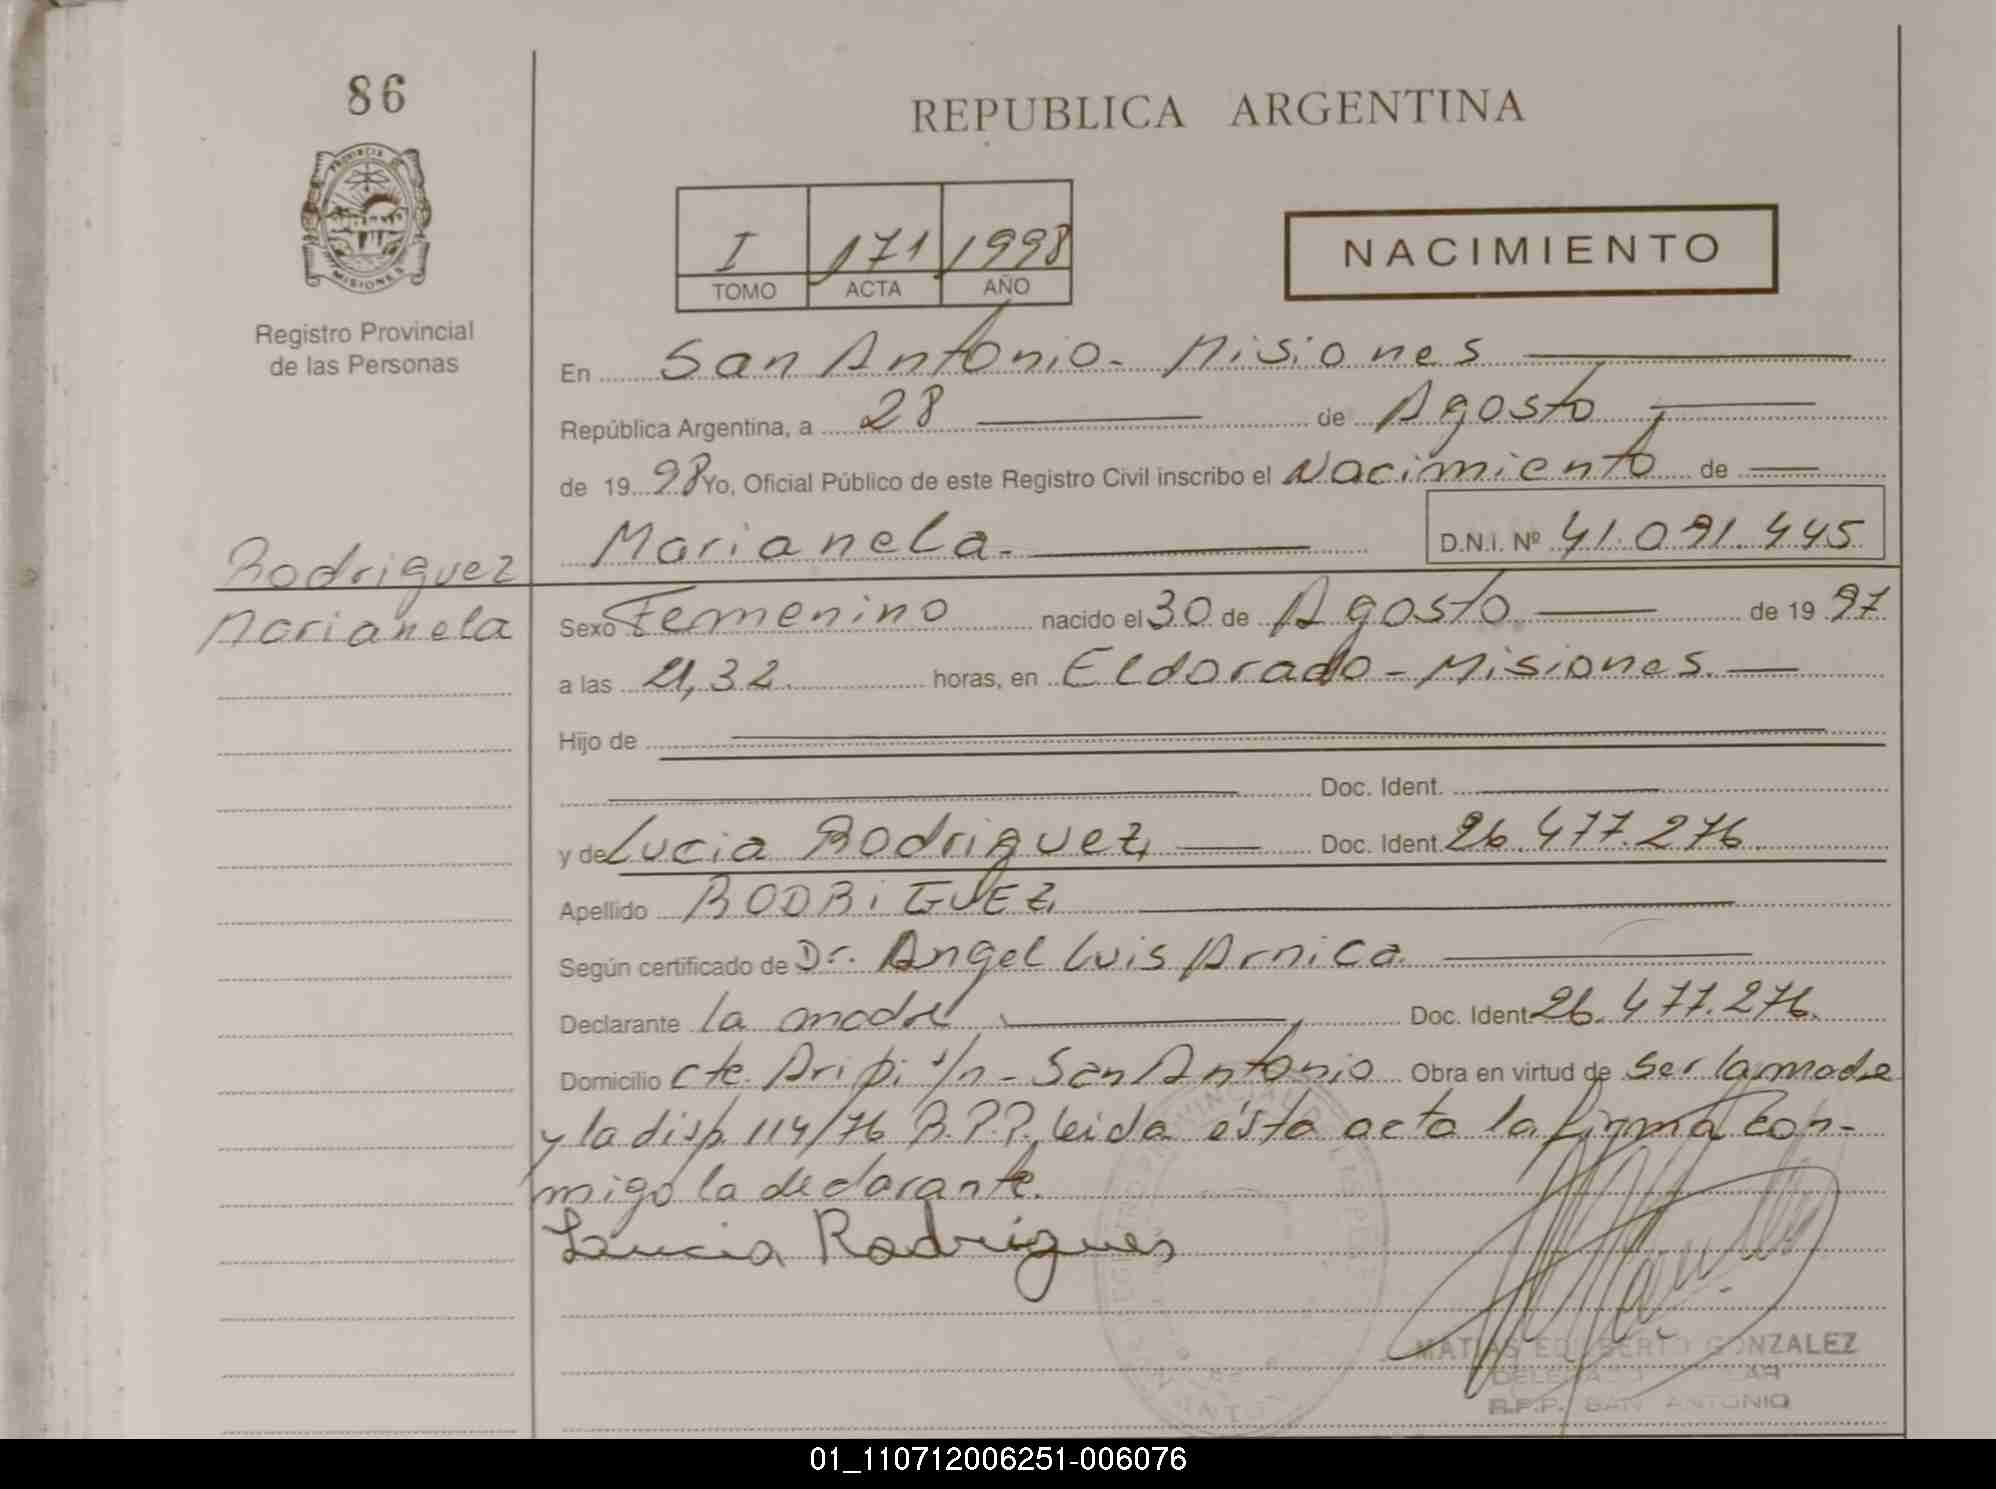 86
REPUBLICA ARGENTINA
PROVINCIA DE
MISIONES
Registro Provincial
de las Personas
I 171 1998
TOMO ACTA AÑO
NACIMIENTO
En San Antonio - Misiones
República Argentina, a 28 de Agosto
de 19 98 Yo, Oficial Público de este Registro Civil inscribo el Nacimiento de
Marianela.
D.N.I. Nº 41.091.445
Rodriguez
Marianela
Sexo Femenino nacido el 30 de Agosto de 19 97
a las 21,32 horas, en Eldorado - Misiones.
Hijo de
Doc. Ident.
y de Lucia Rodriguez, Doc. Ident. 26.477.276.
Apellido RODRiGUEZ,
Según certificado de Dr. Angel Luis Arnica.
Declarante la madre Doc. Ident. 26.477.276.
Domicilio cte. Aripi s/n - San Antonio Obra en virtud de ser la madre
y la disp. 114/76 R.P.P., leida ésta acta la firma con-
migo la declarante.
Lucia Rodrigues
MATIAS EDILBERTO GONZALEZ
R.P.P. SAN ANTONIO
01_110712006251-006076